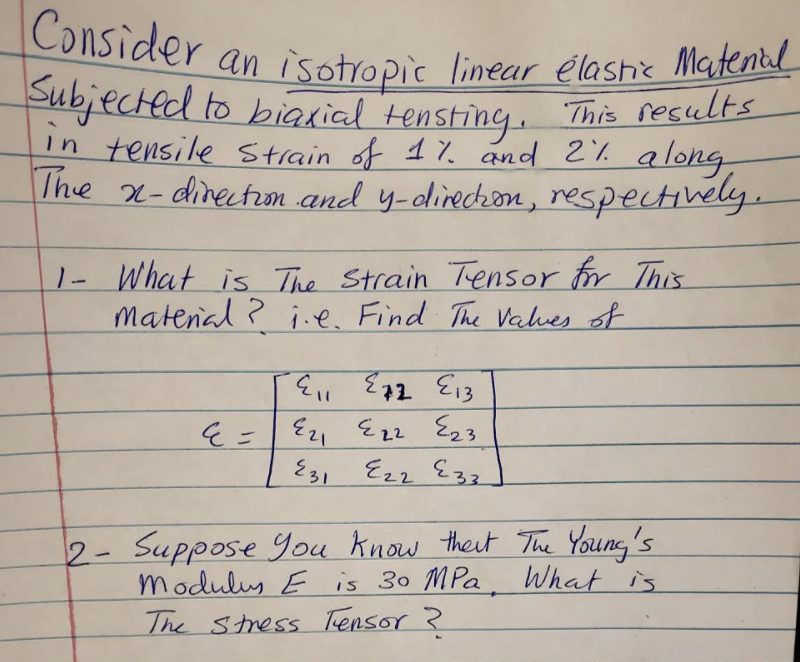 Consider an isotropic linear elastic Material
Subjected to biaxial tensting. This results
in tensile strain of 1% and 2% along
The x-direction and y-direction, respectively.
1- What is The Strain Tensor for This
Material? i.e. Find The Values of
ε = [ ε11 ε12 ε13
ε21 ε22 ε23
ε31 ε22 ε33 ]
2- Suppose you know that The Young's
Modulus E is 30 MPa. What is
The Stress Tensor?